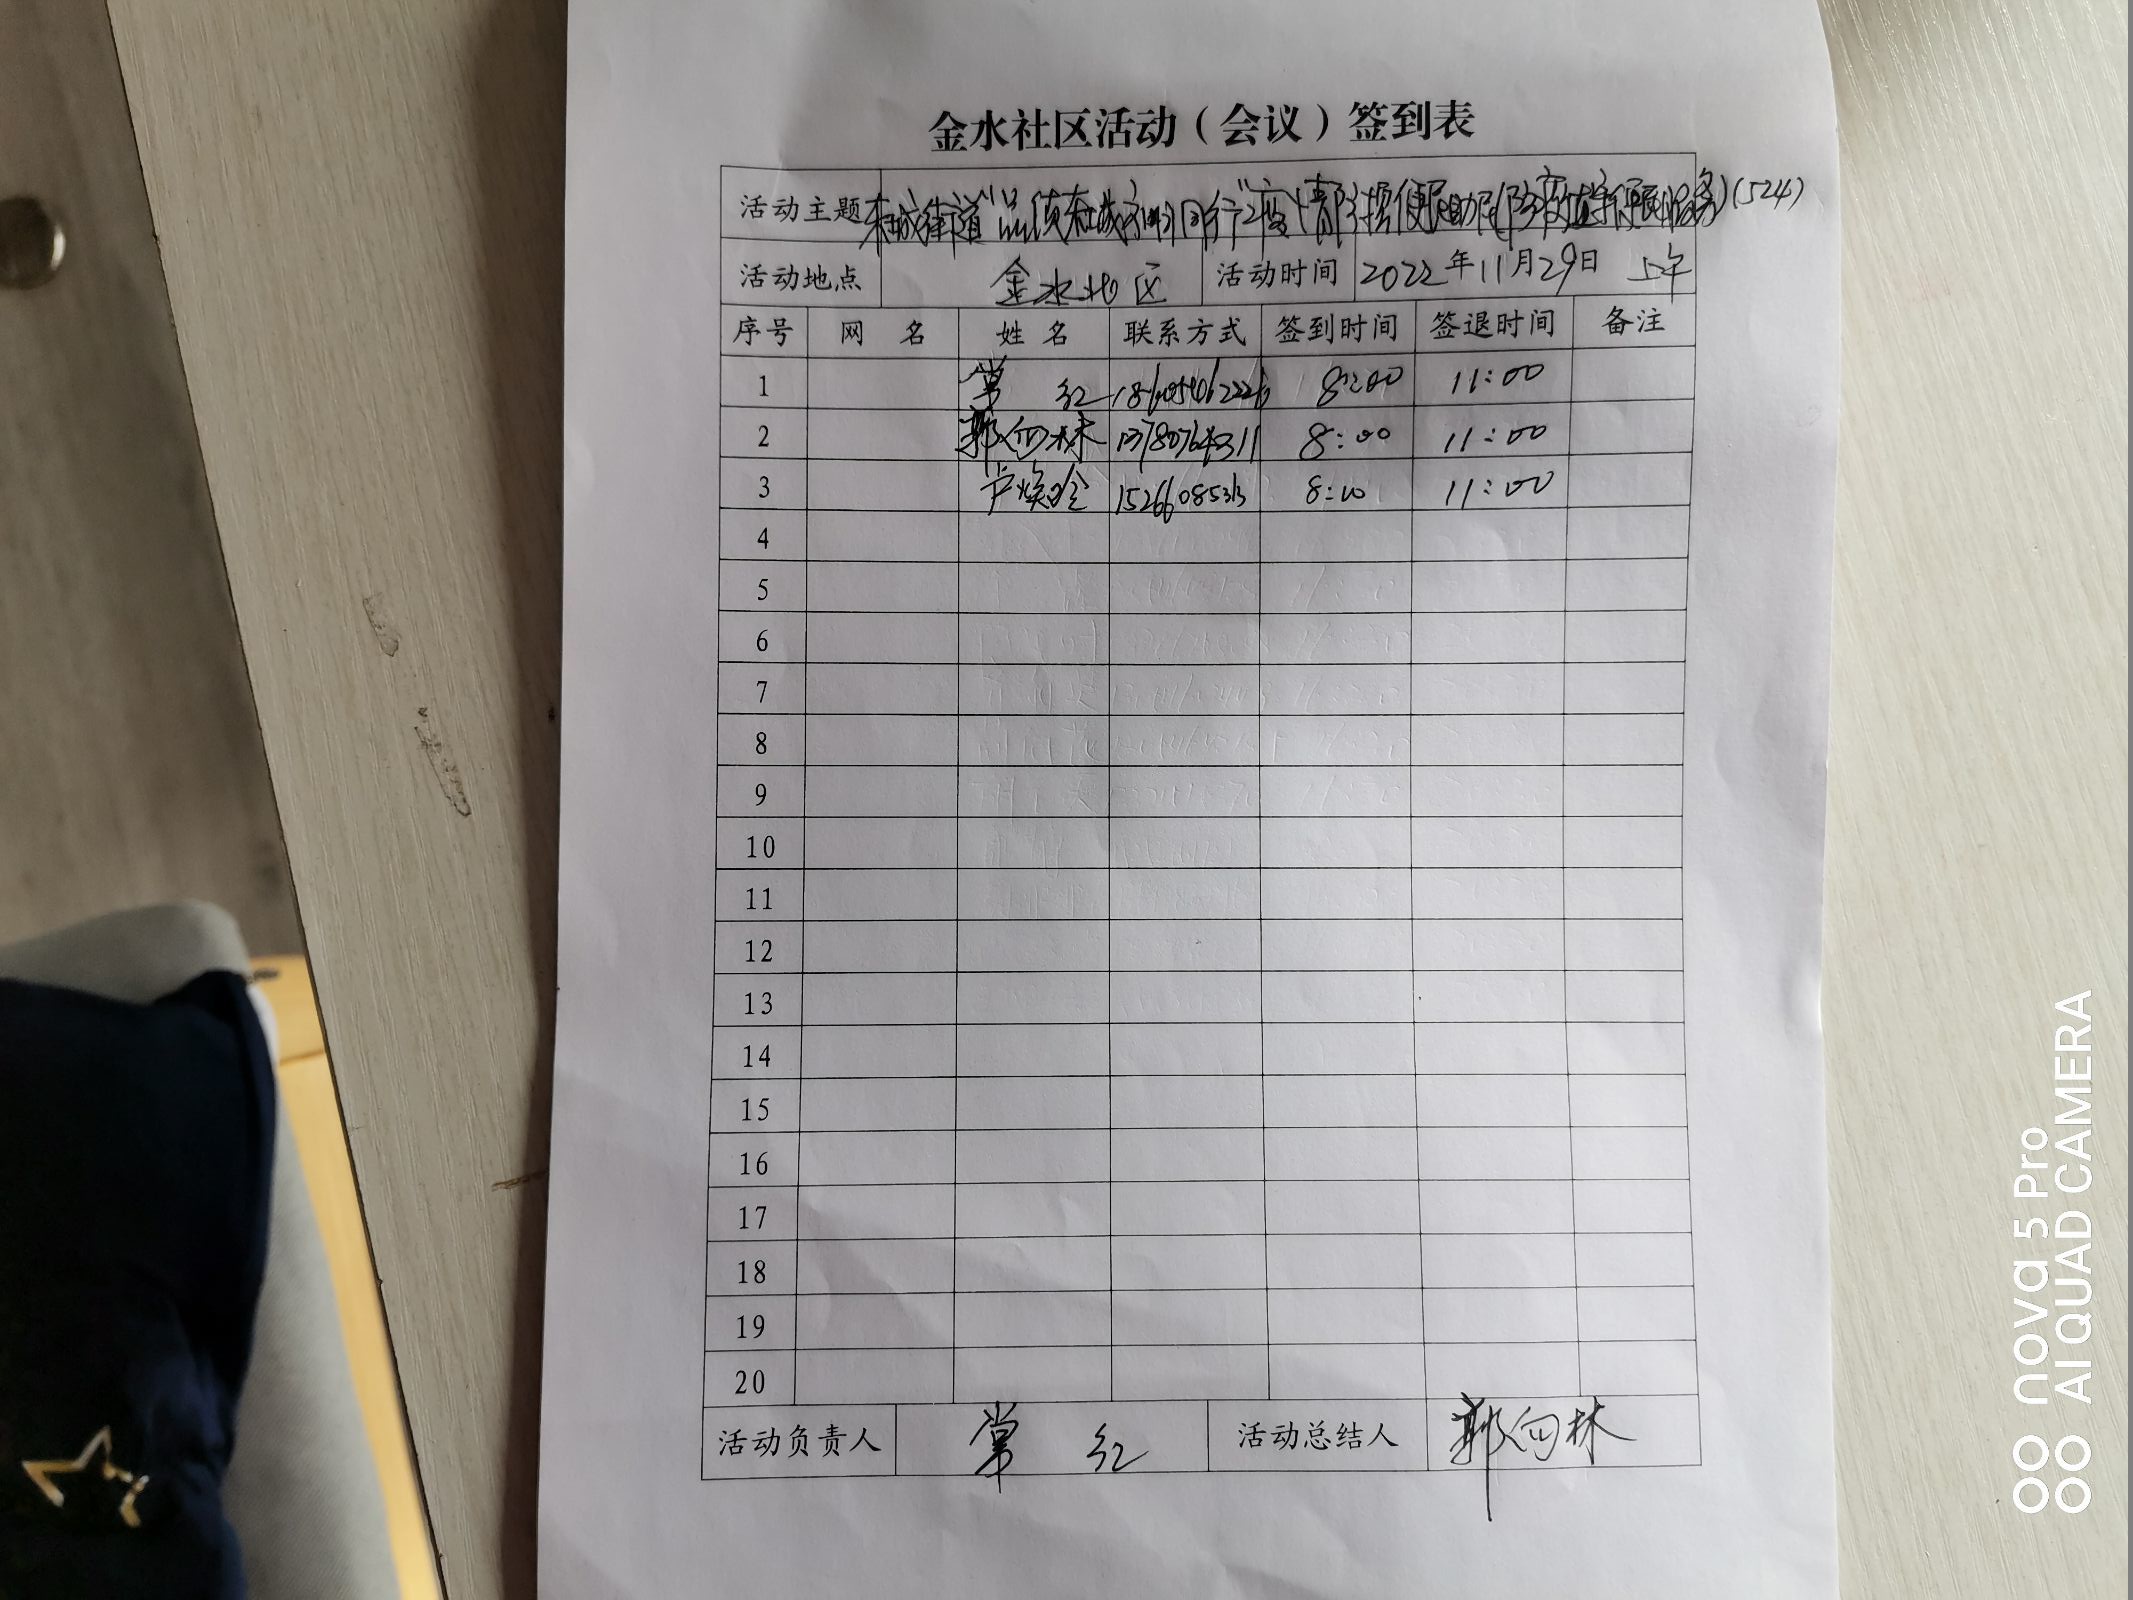 金水社区活动（会议）签到表
活动主题 东城街道"品质东城 文明同行"之 便民 (524)
活动地点 金水社区 活动时间 2022年11月29日 上午
序号 网 名 姓 名 联系方式 签到时间 签退时间 备注
1 常 红 8:00 11:00
2 郭向林 13780764311 8:00 11:00
3 卢焕玲 8:00 11:00
4
5
6
7
8
9
10
11
12
13
14
15
16
17
18
19
20
活动负责人 常 红 活动总结人 郭向林
nova 5 Pro
AI QUAD CAMERA